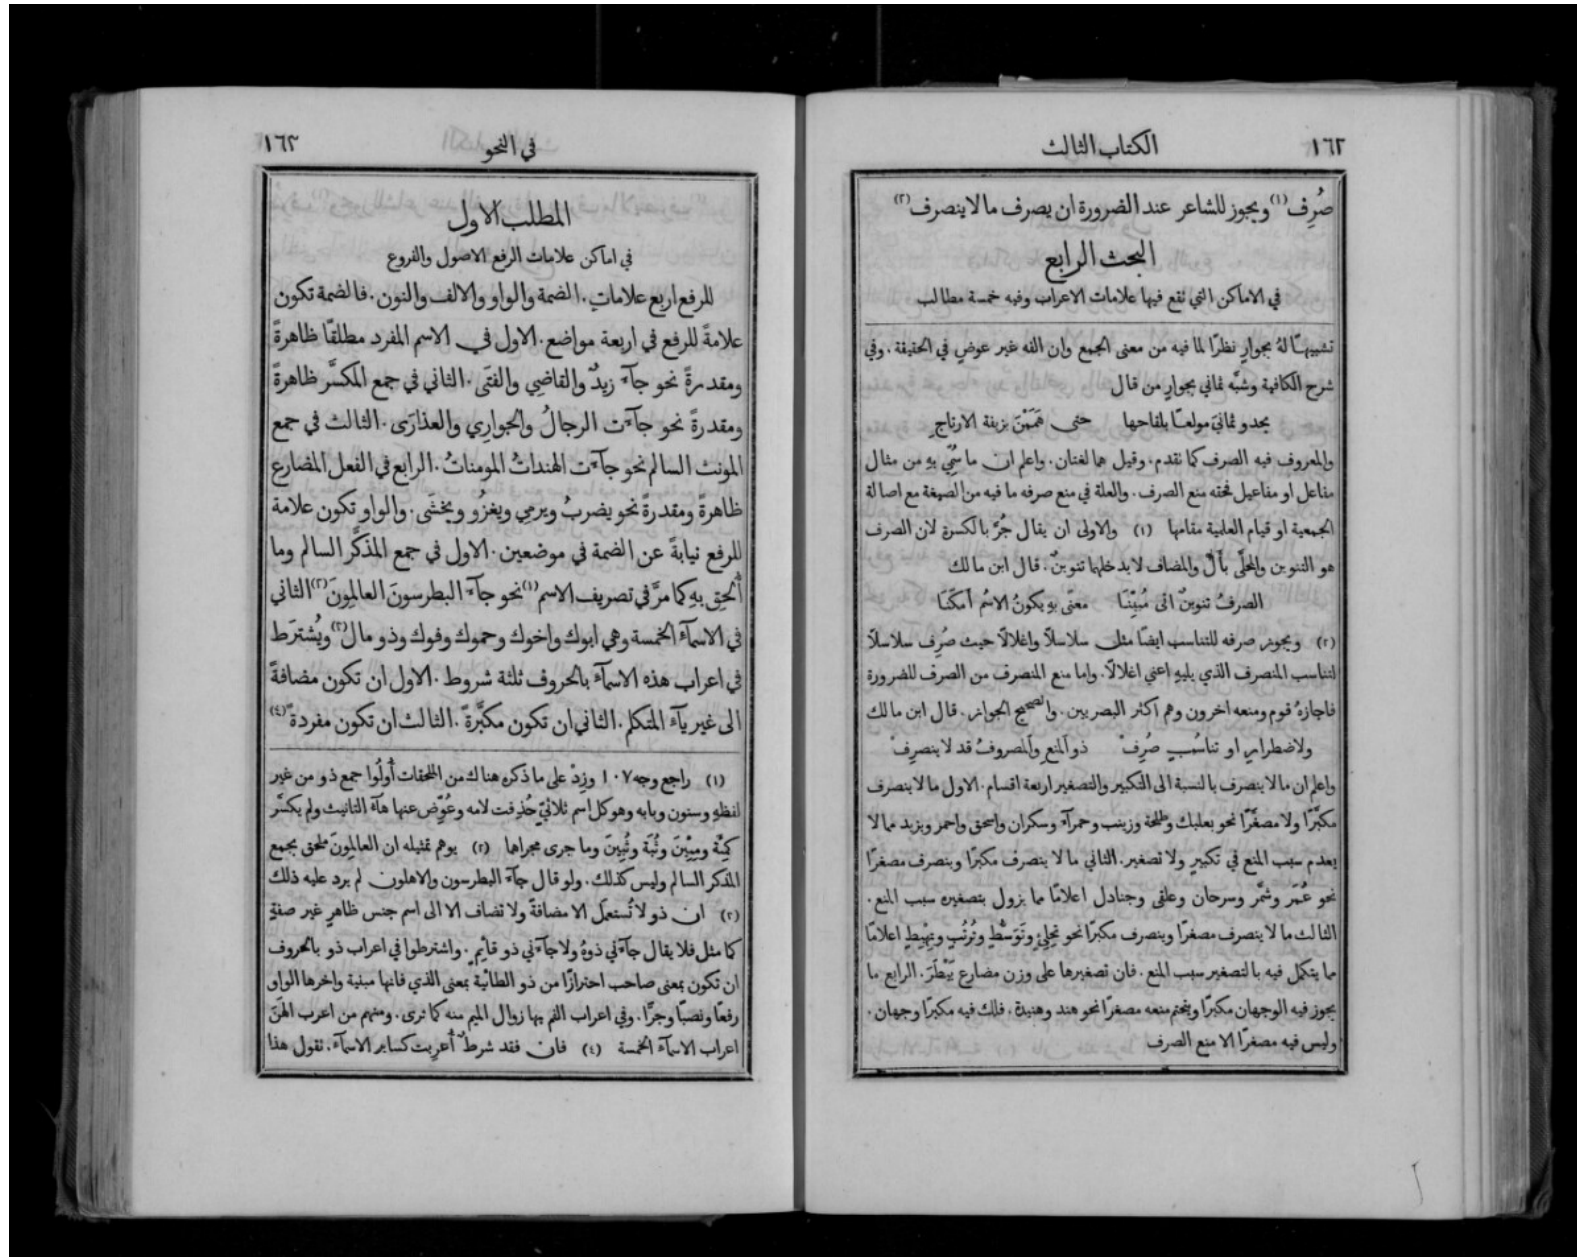 ١٦٢
الكتاب الثالث
صُرِف(١) ويجوز للشاعر عند الضرورة ان يصرف ما لا ينصرف(٢)
البحث الرابع
في الاماكن التي تقع فيها علامات الاعراب وفيه خمسة مطالب
تشبيهًا لهُ بجوارٍ نظرًا لما فيه من معنى الجمع وان الفه غير عوضٍ في الحقيقة. وفي
شرح الكافية وشبَّه ثماني بجوارٍ من قال
يحدو ثمانيَ مولعًا بلقاحها حتى هَمَمْنَ بزيغة الارتاجِ
والمعروف فيه الصرف كما تقدم. وقيل هما لغتان. واعلم ان ما سُمّي بهِ من مثال
مفاعل او مفاعيل فحقه منع الصرف. والعلة في منع صرفه ما فيه من الصيغة مع اصالة
الجمعية او قيام العلمية مقامها (١) والاولى ان يقال جُرَّ بالكسرة لان الصرف
هو التنوين والمحلَّى بأَلْ والمضاف لا يدخلهما تنوينٌ. قال ابن مالك
الصرفُ تنوينٌ اتى مُبيِّنَا معنًى بهِ يكونُ الاسْمُ أمكنَا
(٢) ويجوز صرفه للتناسب ايضًا مثل سلاسلًا واغلالًا حيث صُرِف سلاسلًا
لتناسب المنصرف الذي يليهِ اعني اغلالًا. واما منع المنصرف من الصرف للضرورة
فاجازهُ قوم ومنعه اخرون وهم اكثر البصريين. والصحيح الجواز. قال ابن مالك
ولاضطرارٍ او تناسُبٍ صُرِفْ ذو المنعِ والمصروفُ قد لا ينصرِفْ
واعلم ان ما لا ينصرف بالنسبة الى التكبير والتصغير اربعة اقسام. الاول ما لا ينصرف
مكبَّرًا ولا مصغَّرًا نحو بعلبك وطلحة وزينب وحمرآء وسكران واسحق واحمر ويزيد مما لا
يعدم سبب المنع في تكبيرٍ ولا تصغير. الثاني ما لا ينصرف مكبرًا وينصرف مصغرًا
نحو عُمَر وشمَّر وسرحان وعلقى وجنادل اعلامًا مما يزول بتصغيره سبب المنع.
الثالث ما لا ينصرف مصغرًا وينصرف مكبرًا نحو تحلِئٍ وتَوَسُّطٍ وتُرتُبٍ وتِهْبِطٍ اعلامًا
مما يتكمل فيه بالتصغير سبب المنع. فان تصغيرها على وزن مضارع بَيْطَرَ. الرابع ما
يجوز فيه الوجهان مكبرًا ويتحتم منعه مصغرًا نحو هند وهنيدة. فلك فيه مكبرًا وجهان.
وليس فيه مصغرًا الا منع الصرف
في النحو
١٦٣
المطلب الاول
في اماكن علامات الرفع الاصول والفروع
للرفع اربع علاماتٍ. الضمة والواو والالف والنون. فالضمة تكون
علامةً للرفع في اربعة مواضع. الاول في الاسم المفرد مطلقًا ظاهرةً
ومقدرةً نحو جآء زيدٌ والقاضِي والفتَى. الثاني في جمع المكسَّر ظاهرةً
ومقدرةً نحو جآءت الرجالُ والجوارِي والعذارَى. الثالث في جمع
المونث السالم نحو جآءت الهنداتُ المومناتُ. الرابع في الفعل المضارع
ظاهرةً ومقدرةً نحو يضربُ ويرمِي ويغزُو ويخشَى. والواو تكون علامة
للرفع نيابةً عن الضمة في موضعين. الاول في جمع المذكَّر السالم وما
أُلحِق بهِ كما مرَّ في تصريف الاسم(١) نحو جآء البطرسونَ العالِمونَ(٢) الثاني
في الاسمآء الخمسة وهي ابوك واخوك وحموك وفوك وذو مال(٣) ويُشترَط
في اعراب هذه الاسمآء بالحروف ثلثة شروط. الاول ان تكون مضافةً
الى غير يآء المتكلم. الثاني ان تكون مكبَّرةً. الثالث ان تكون مفردةً(٤)
(١) راجع وجه ١٠٧ وزِدْ على ما ذكره هناك من الملحقات أُولُوا جمع ذو من غير
لفظهِ وسنون وبابه وهو كل اسم ثلاثيّ حُذِفت لامه وعُوِّض عنها هآء التانيث ولم يكسَّر
كمِئَة ومِئِينَ وثُبَة وثُبِينَ وما جرى مجراها (٢) يوهم تمثيله ان العالِمونَ ملحق بجمع
المذكر السالم وليس كذلك. ولو قال جآء البطرسون والاهلون لم يرد عليه ذلك
(٣) ان ذو لا تُستعمَل الا مضافةً ولا تضاف الا الى اسم جنس ظاهرٍ غير صفةٍ
كما مثل فلا يقال جآءني ذوهُ ولا جآءني ذو قائمٍ. واشترطوا في اعراب ذو بالحروف
ان تكون بمعنى صاحب احترازًا من ذو الطائية بمعنى الذي فانها مبنية واخرها الواو
رفعًا ونصبًا وجرًّا. وفي اعراب الفم بها زوال الميم منه كما ترى. ومنهم من اعرب الهَنَ
اعراب الاسمآء الخمسة (٤) فان فقد شرطٌ أُعرِبت كساير الاسمآء. تقول هذا